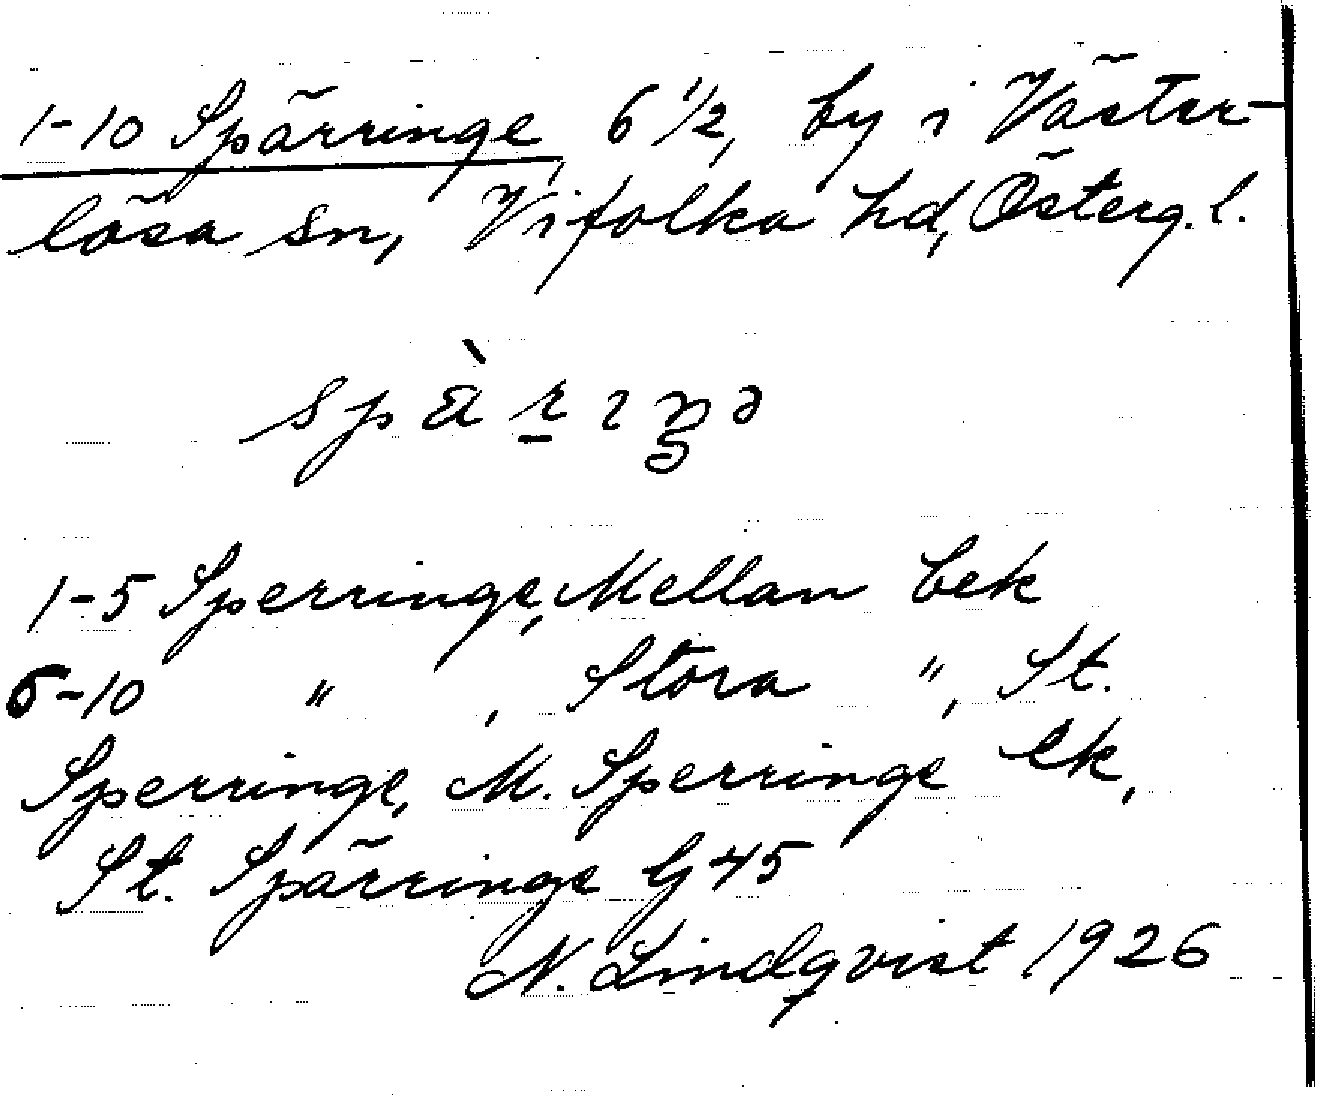 1-10 Spärringe, 6 1/2, by i Väster-
lösa sn, Vifolka hd, Österg. l.
spàrıŋə
1-5 Sperringe, Mellan bek
6-10 " , Stora ", St.
Sperringe, M. Sperringe ek,
St. Spärringe G 45
N. Lindqvist 1926